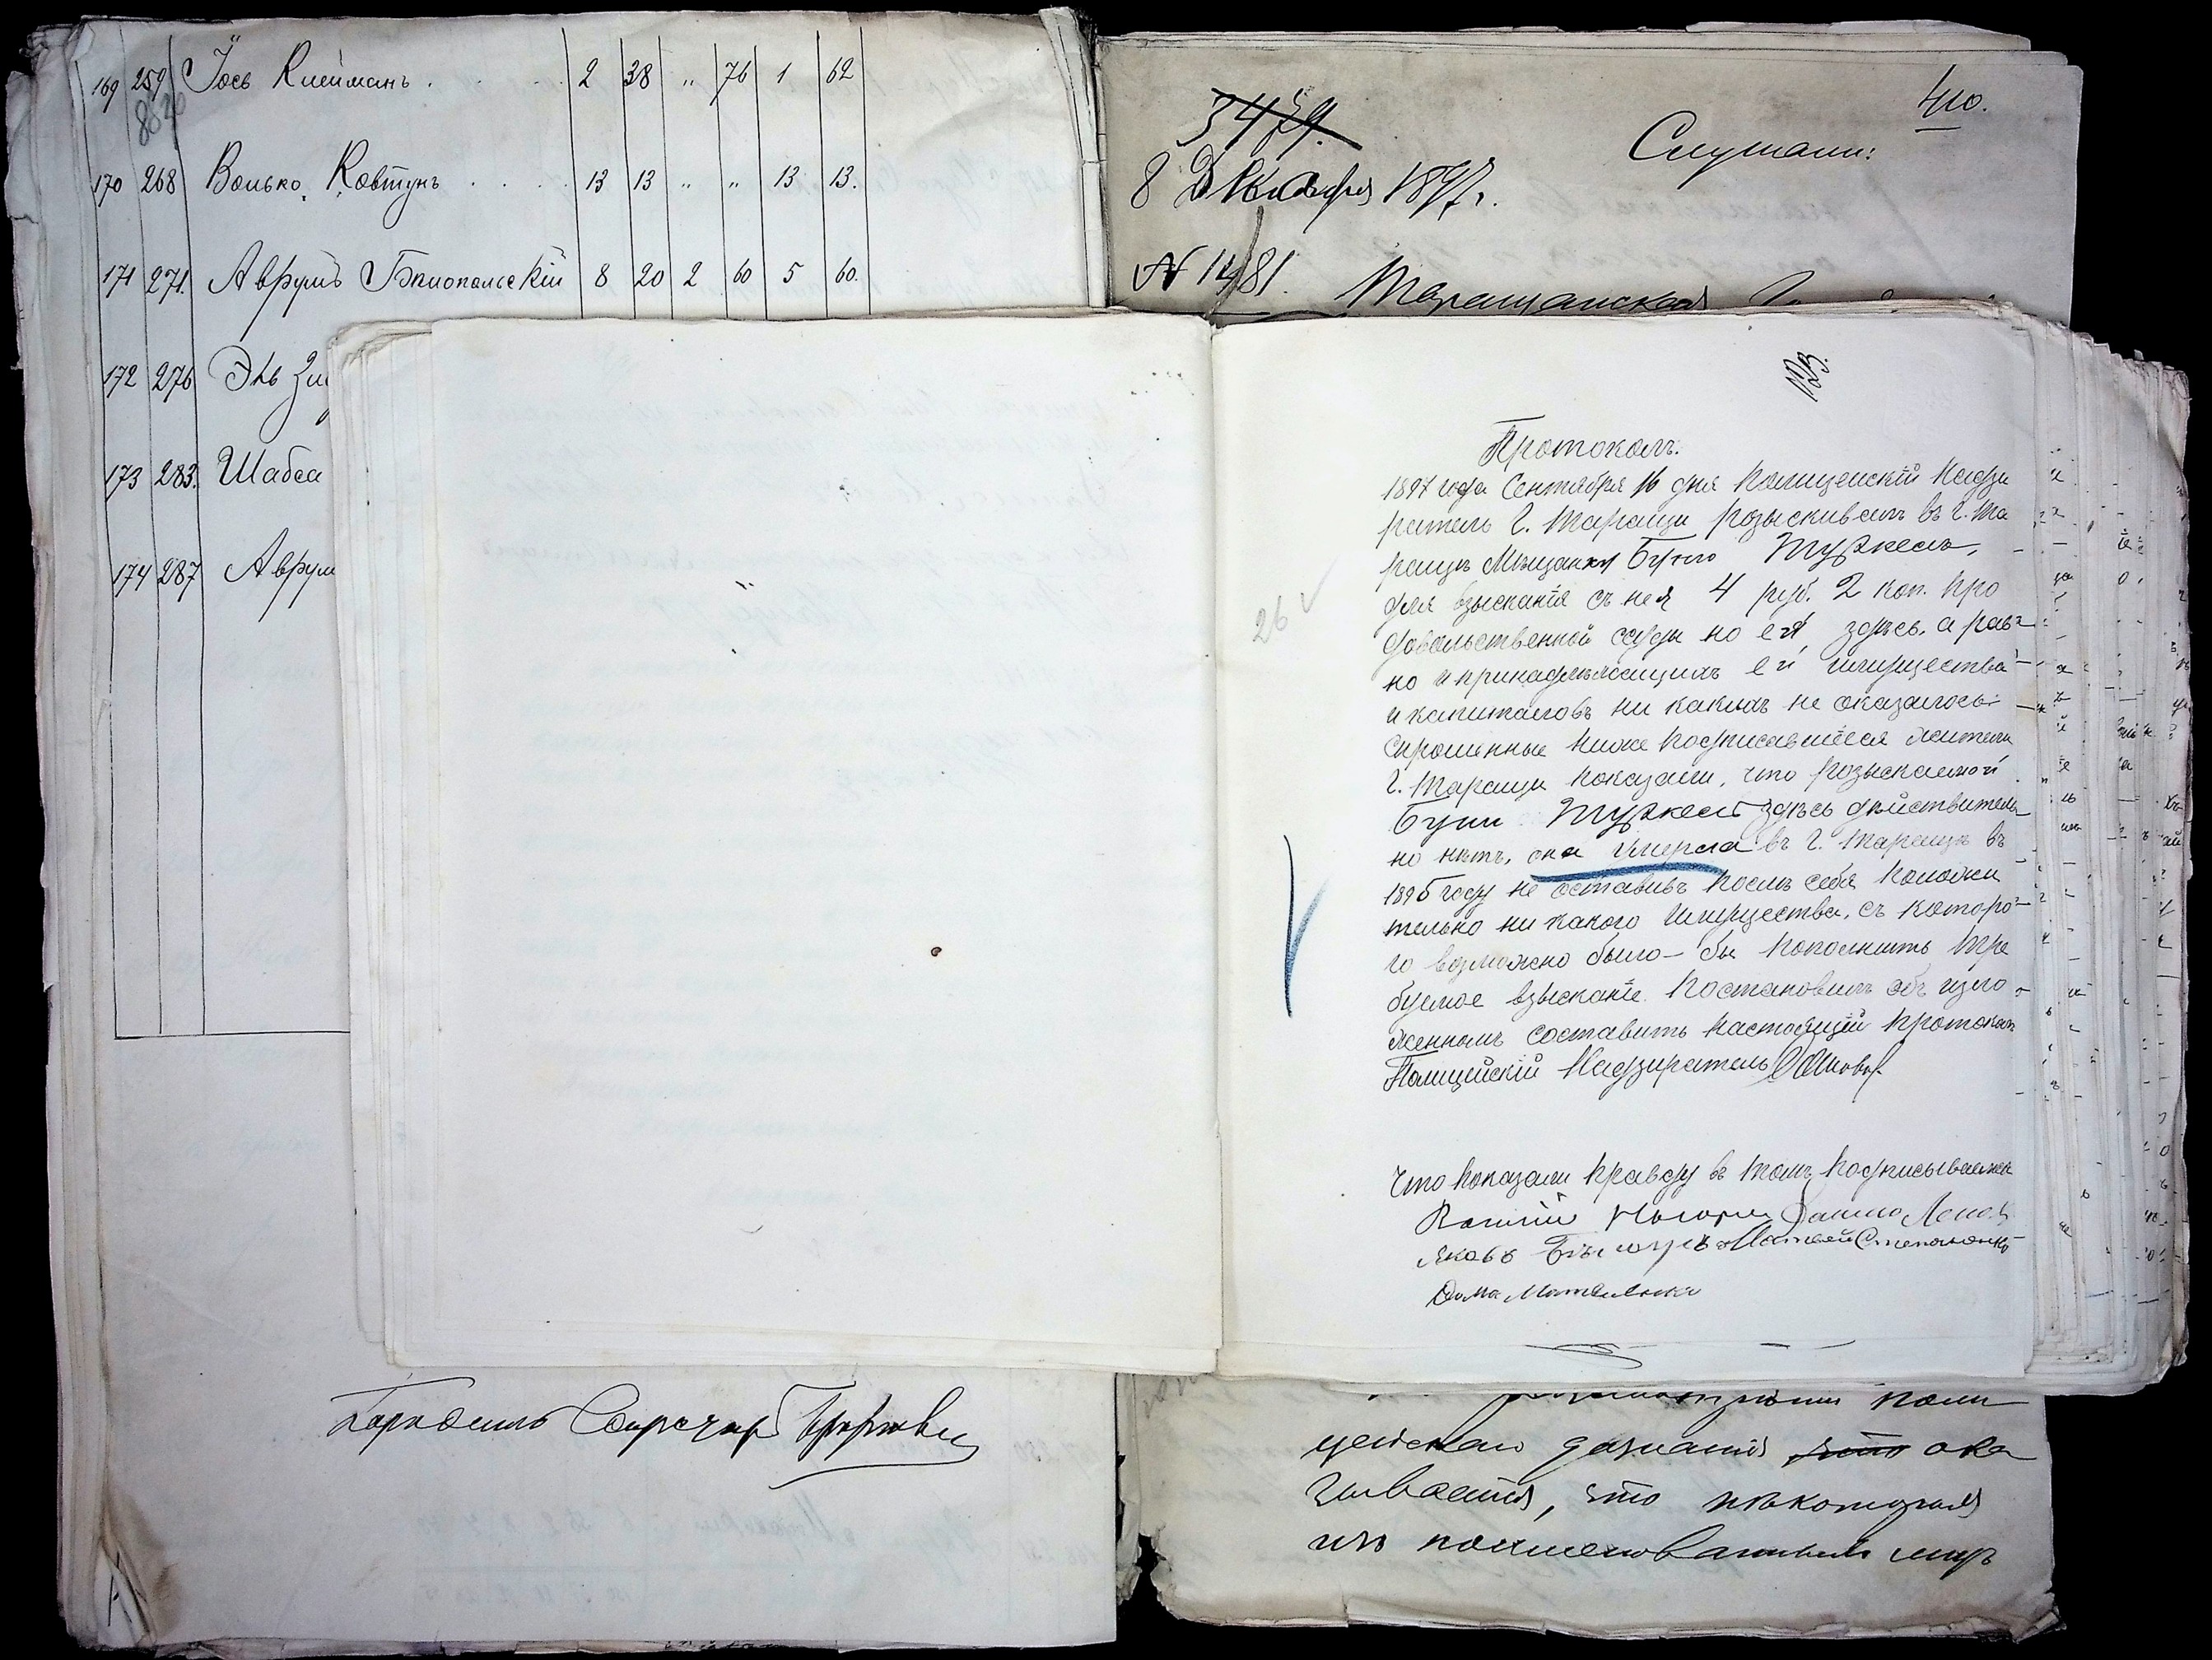 169 259 Іось Клейманъ . . . . 2 38 „ 76 1 62
170 268 Волько Ковтунъ . . . . 13 13 „ „ 13 13.
171 271. Аврумъ Бялопольскій 8 20 2 60 5 60.
172 276
173 283. Шабса
174 287 Аврум
410.
Слушали:
8 Декабря 1897 г.
N 1481. Таращанская
123.
Протоколъ.
1897 года Сентября 16 дня Полицейскій Надзи
ратель г. Таращи розыскивалъ въ г. Та
ращѣ Мѣщанку Бузю Туркель,
для взысканія съ нея 4 руб. 2 коп. про
довольственной ссуды но ея здѣсь, а рав-
но и принадлежащихъ ей имущества
и капиталовъ ни какихъ не оказалось
спрошенные ниже подписавшіеся жители
г. Таращи показали, что розыскаемой
Бузи Туркель здѣсь дѣйствитель
но нѣтъ, она умерла въ г. Таращѣ въ
1895 году не оставивъ послѣ себя положи
тельно ни какого имущества, съ которо-
го возможно было-бы пополнить тре
буемое взысканіе. Постановилъ объ изло
женномъ составить настоящій протоколъ
Полицейскій Надзиратель
26
Что показали правду въ томъ подписываемся
Яковъ Матвей Степаненко
цейскаго дознанія ока
зывается, что нѣкоторыя
изъ поименованныхъ лицъ